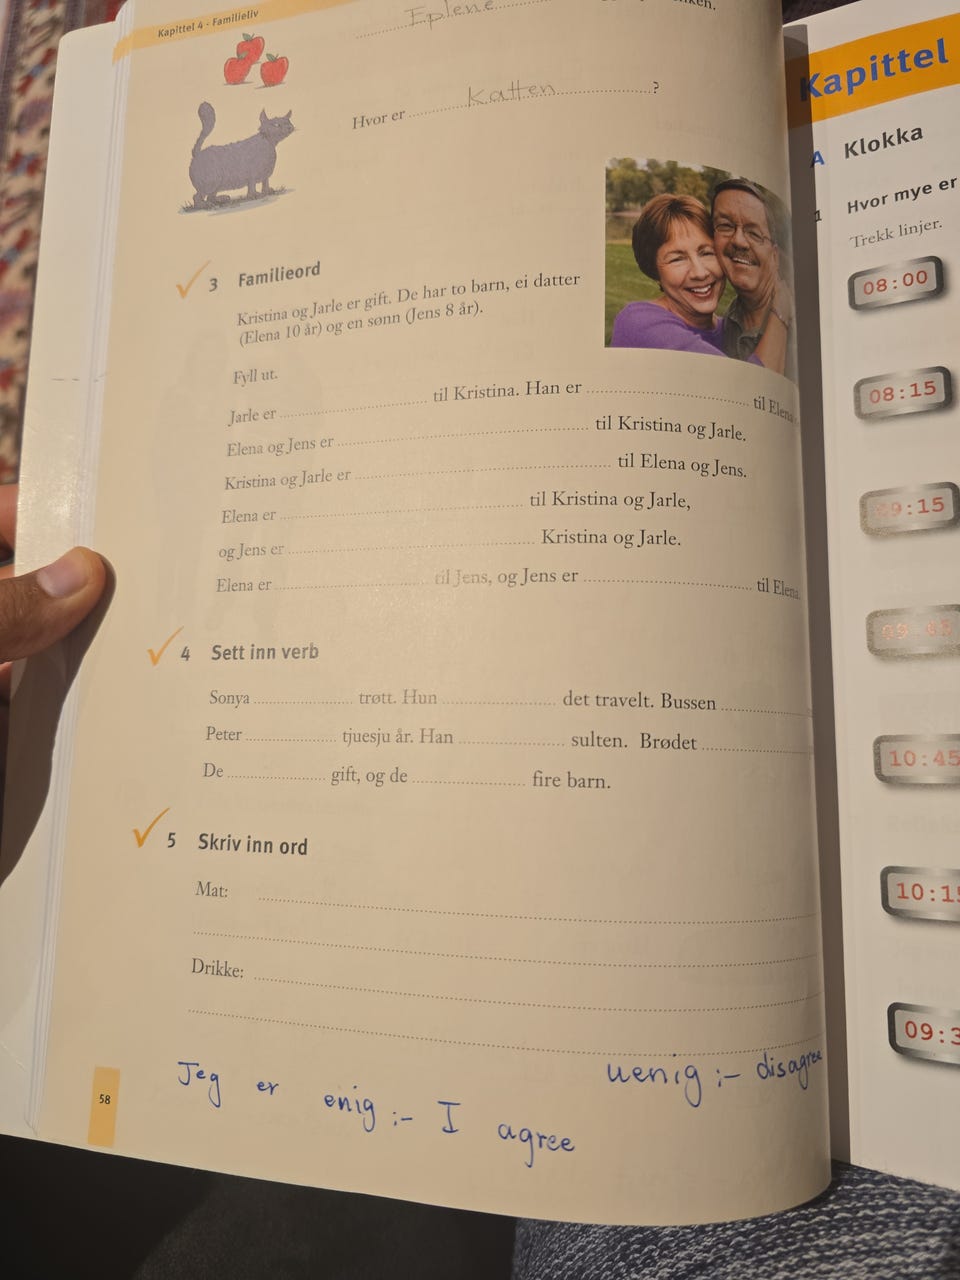 Kapittel 4 - Familieliv
Eplene
Hvor er Katten ?
3 Familieord
Kristina og Jarle er gift. De har to barn, ei datter
(Elena 10 år) og en sønn (Jens 8 år).
Fyll ut.
Jarle er ........ til Kristina. Han er ........ til Elena
Elena og Jens er ........ til Kristina og Jarle.
Kristina og Jarle er ........ til Elena og Jens.
Elena er ........ til Kristina og Jarle,
og Jens er ........ Kristina og Jarle.
Elena er ........ til Jens, og Jens er ........ til Elena.
4 Sett inn verb
Sonya ........ trøtt. Hun ........ det travelt. Bussen ........
Peter ........ tjuesju år. Han ........ sulten. Brødet ........
De ........ gift, og de ........ fire barn.
5 Skriv inn ord
Mat:
Drikke:
Jeg er enig :- I agree
uenig :- disagree
58
Kapittel
A Klokka
1 Hvor mye er
Trekk linjer.
08:00
08:15
09:15
10:45
10:15
09:3